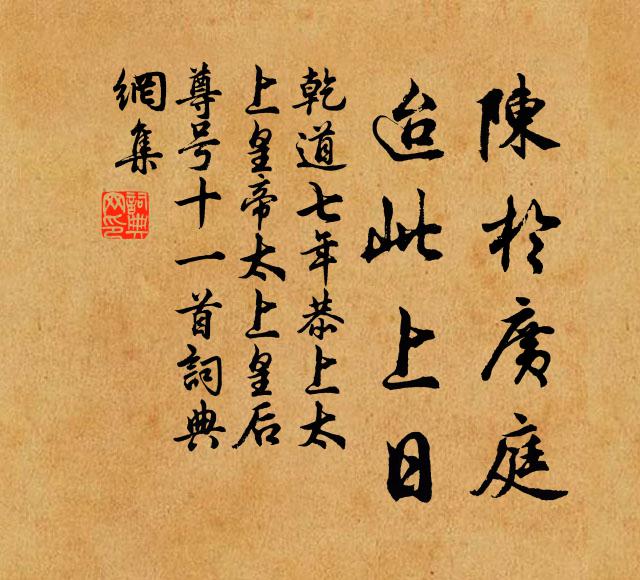 陳於廣庭
迨此上日
乾道七年恭上太
上皇帝太上皇后
尊号十一首詞典
網集
詞典
网印